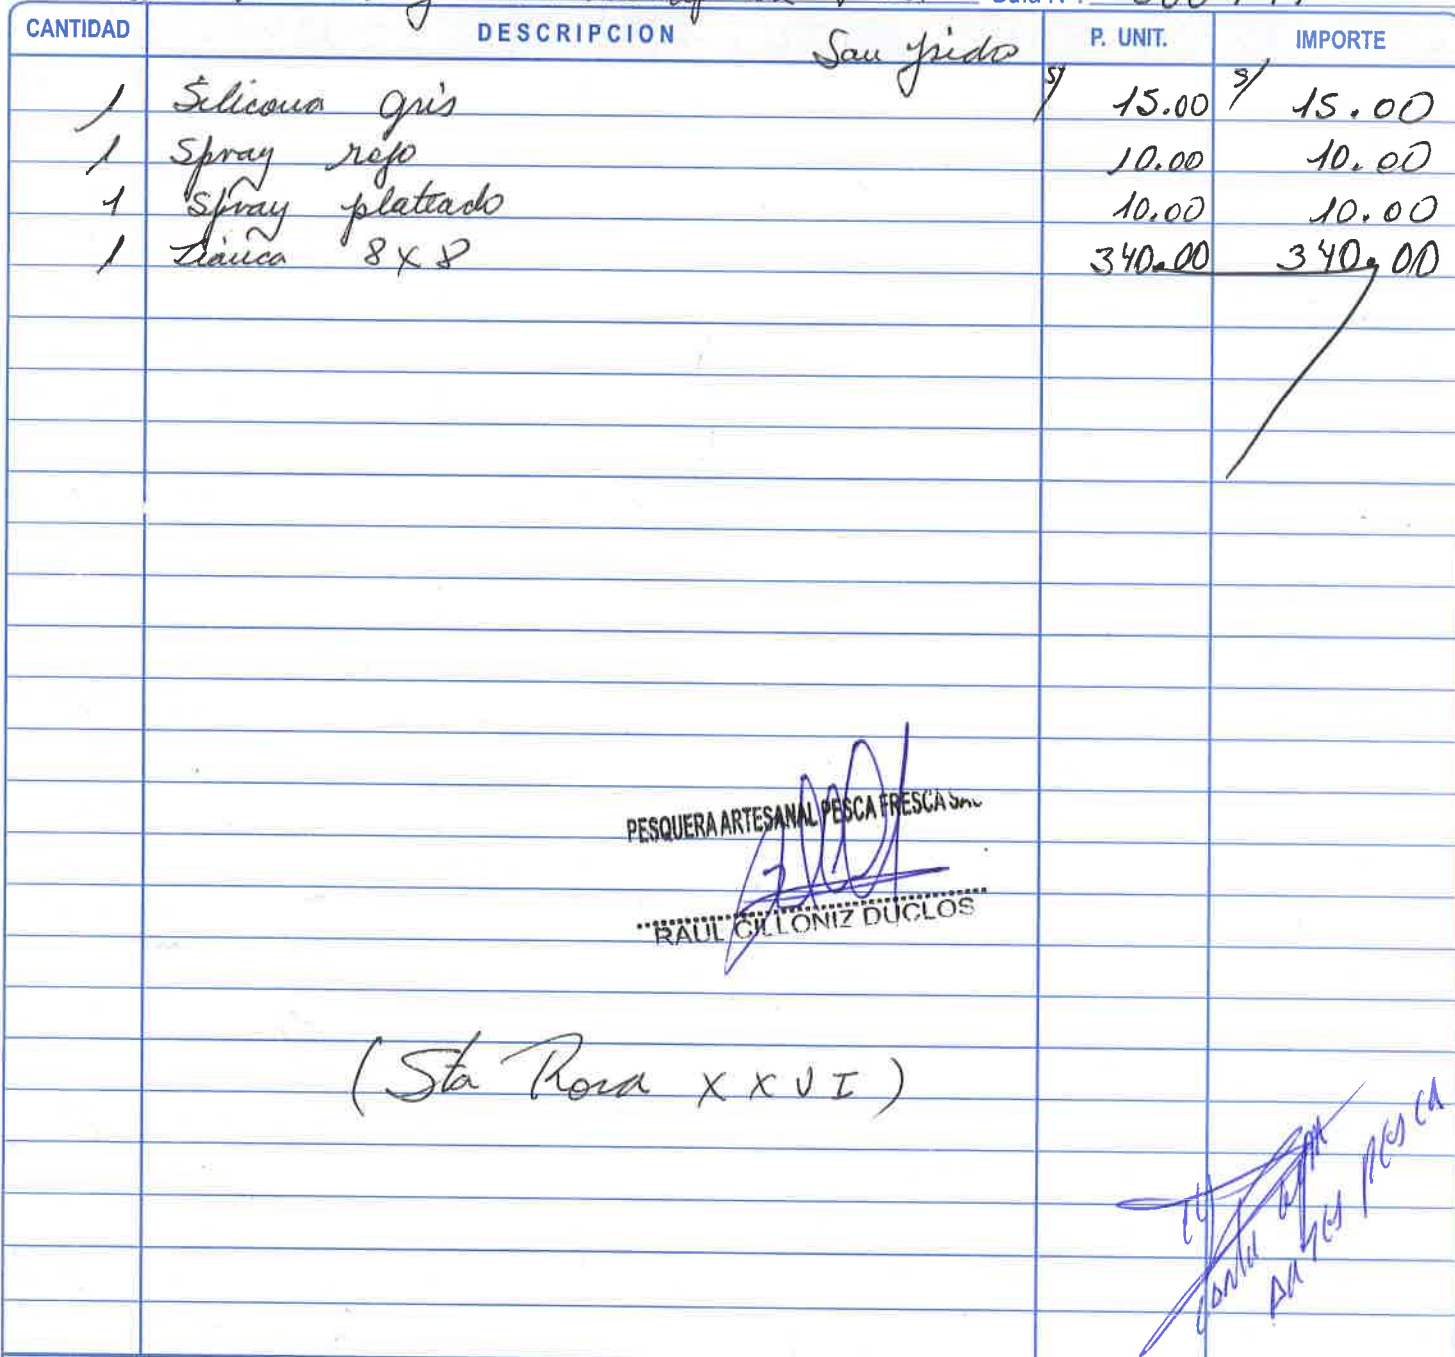 CANTIDAD DESCRIPCION P. UNIT. IMPORTE
San
1 Silicona gris S/ 15.00 S/ 15.00
1 Spray rojo 10.00 10.00
1 Spray plateado 10.00 10.00
1 8 x 8 340.00 340.00
PESQUERA ARTESANAL PESCA FRESCA SAC
RAUL GILLONIZ DUCLOS
(Sta Rosa XXVI)